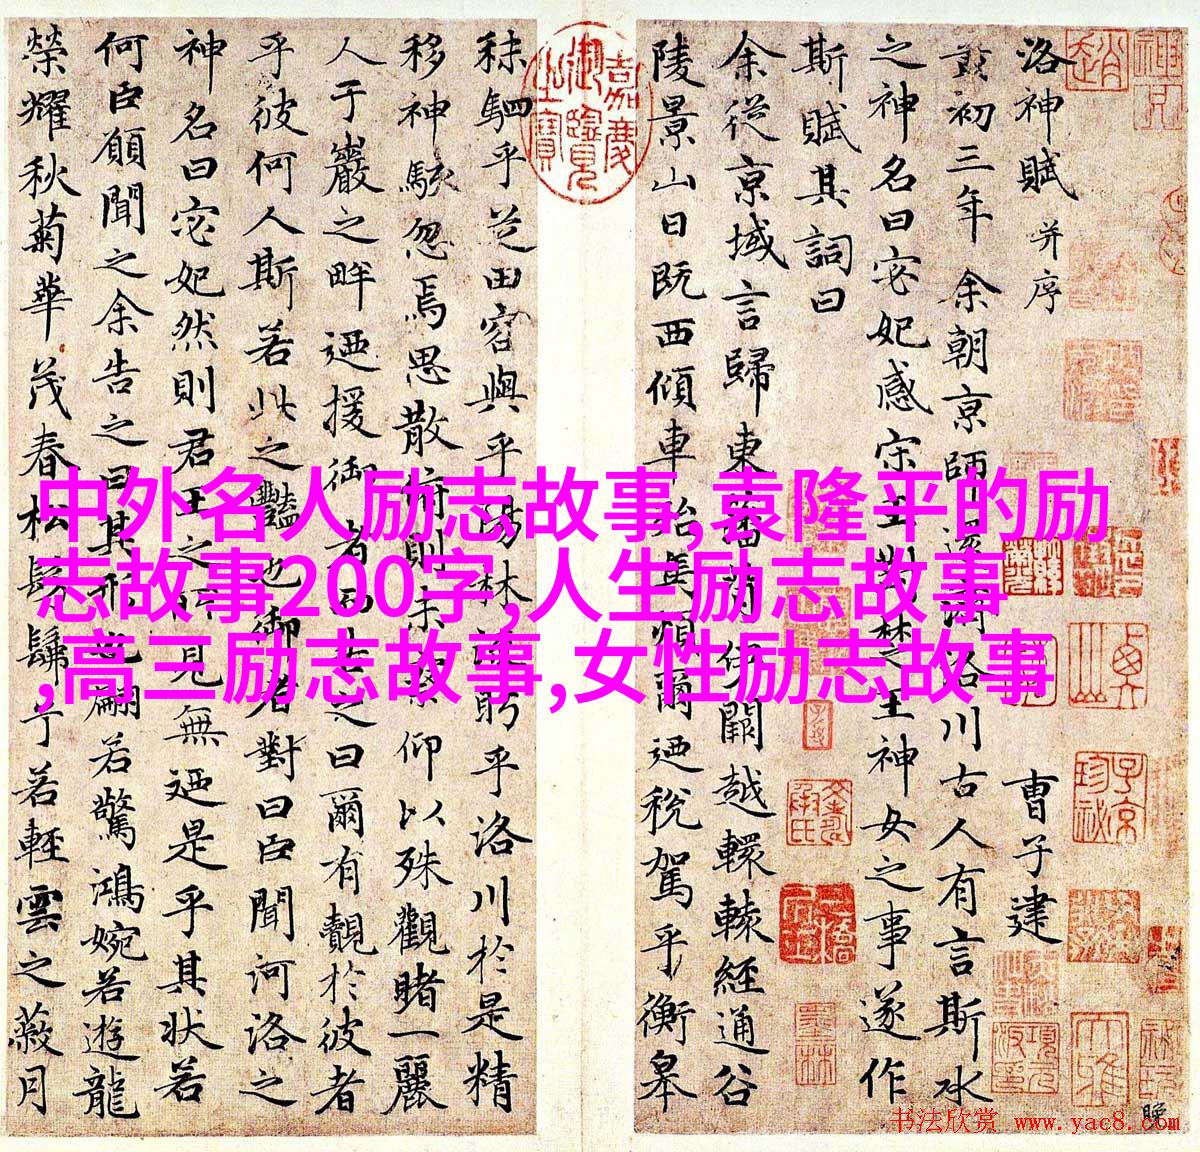 中外名人励志故事,袁隆平的励
志故事200字,人生励志故事
,高三励志故事,女性励志故事
洛神賦 并序 曹子建
黃初三年余朝京師還濟洛川古人有言斯水
之神名曰宓妃感宋玉對楚王神女之事遂作
斯賦其詞曰
余從京域言歸東藩背伊闕越轘轅經通谷
陵景山日既西傾車殆馬煩爾迺稅駕乎衡皋
嘉慶御覽之寶
秣駟乎芝田容與乎陽林流眄乎洛川於是精
移神駭忽焉思散俯則未察仰以殊觀睹一麗
人于巖之畔迺援御者而告之曰爾有覿於彼者
乎彼何人斯若此之豔也御者對曰臣聞河洛之
神名曰宓妃然則君王之所見無迺是乎其狀若
何臣願聞之余告之曰其形也翩若驚鴻婉若遊龍
榮耀秋菊華茂春松髣髴兮若輕雲之蔽月
书法欣赏 www.yac8.com